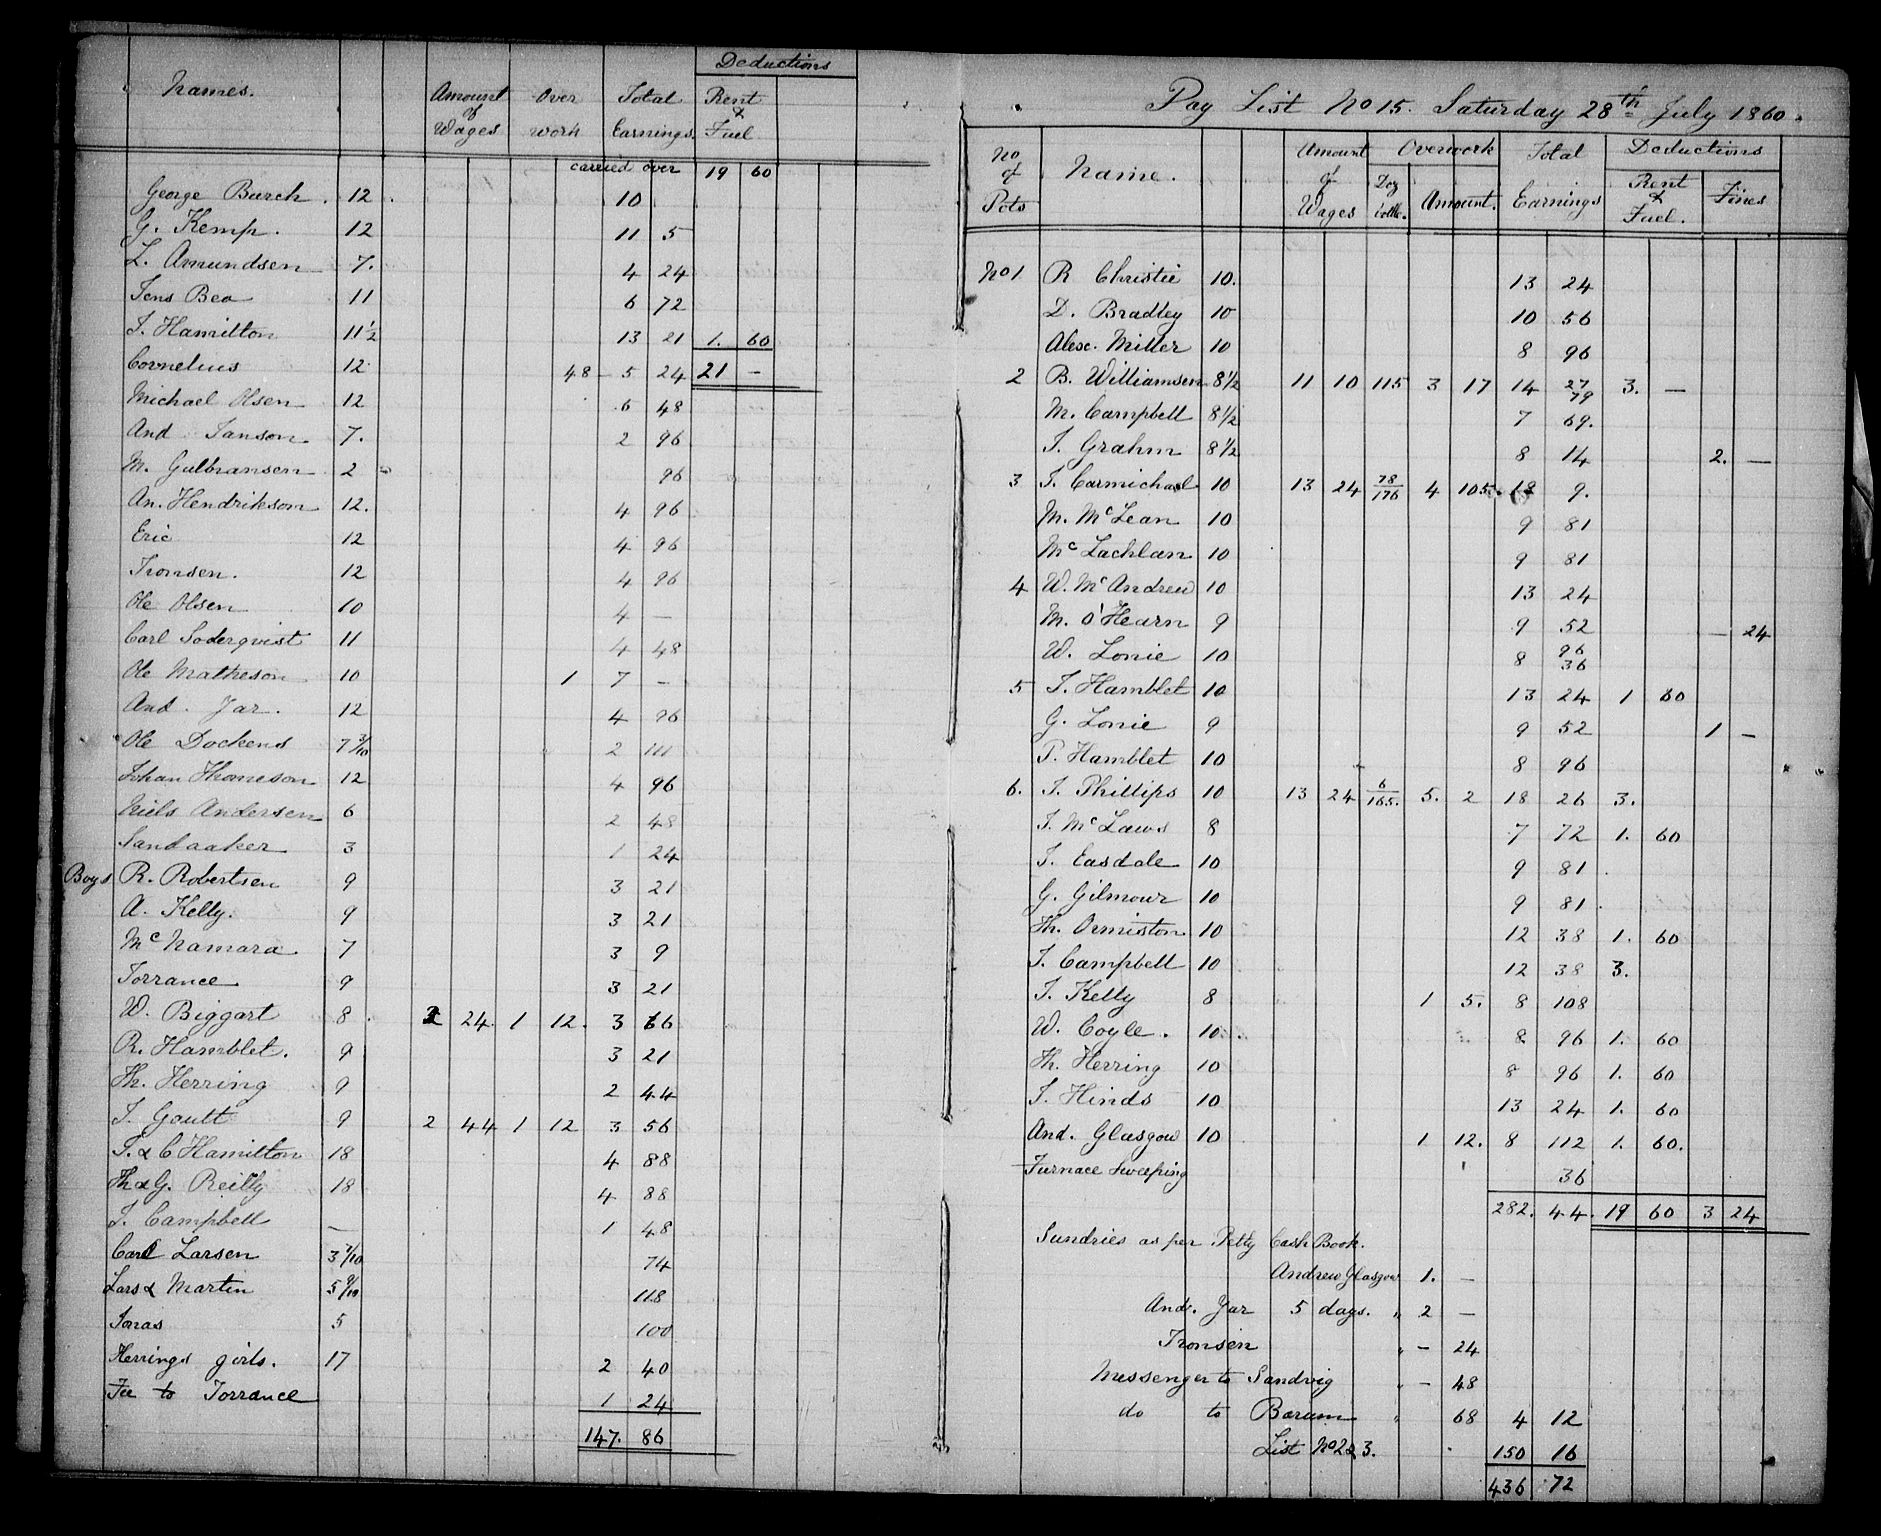 Names. Amount of Wages Over work Total Earnings. Deductions Rent & Fuel
carried over 19 60
George Burch. 12 10
G. Kemp. 12 11 5
L. Amundsen 7. 4 24
Jens Bea 11 6 72
J. Hamilton 11½ 13 21 1. 60
Cornelius 12 48 5 24 21 –
Michael Olsen 12 6 48
And Janson 7. 2 96
M. Gulbransen 2 96
An. Hendrikson 12. 4 96
Eric 12 4 96
Tronsen. 12 4 96
Ole Olsen 10 4 –
Carl Soderqvist 11 4 48
Ole Matheson 10 1 7 –
And. Jar. 12 4 96
Ole Dockens 7 3/10 2 111
Johan Thomeson 12 4 96
Niels Andersen 6 2 48
Sandaaker 3 1 24
Boys R. Robertsen 9 3 21
A. Kelly. 9 3 21
McNamara 7 3 9
Torrance 9 3 21
W. Biggart 8 2 24 1 12. 3 66
R. Hamblet. 9 3 21
Th. Herring 9 2 44
J. Goutt 9 2 44 1 12 3 56
J. & C Hamilton 18 4 88
Th & G. Reilly 18 4 88
J. Campbell – 1 48
Carl Larsen 3 7/10 74
Lars & Martin 5 9/10 118
Jonas 5 100
Herrings girls. 17 2 40
Fee to Torrance 1 24
147. 86
Pay List No 15. Saturday 28th July 1860.
No of Pots Name. Amount of Wages Overwork Doz bottle. Amount. Total Earnings Deductions Rent & Fuel. Fines
No 1 R Christie 10. 13 24
D. Bradley 10 10 56
Alexr. Miller 10 8 96
2 B. Williamsen 8½ 11 10 115 3 17 14 27 79 3. –
M. Campbell 8½ 7 69.
J. Grahm 8½ 8 14 2. –
3 J. Carmichael 10 13 24 78/176 4 105. 18 9.
M. McLean 10 9 81
McLachlan 10 9 81
4 W. McAndrew 10 13 24
M. O'Hearn 9 9 52 – 24
W. Lonie 10 8 96 36
5 J. Hamblet 10 13 24 1 60
G. Lonie 9 9 52 1 –
P. Hamblet 10 8 96
6. J. Phillips 10 13 24 6/165. 5. 2 18 26 3.
J. McLaws 8 7 72 1. 60
J. Easdale 10 9 81
G. Gilmour 10 9 81
Th. Ormiston 10 12 38 1. 60
J. Campbell 10 12 38 3.
J. Kelly 8 1 5. 8 108
W. Coyle. 10 8 96 1. 60
Th. Herring 10 8 96 1. 60
J. Hinds 10 13 24 1. 60
And. Glasgow 10 1 12. 8 112 1. 60.
Furnace sweeping 36
282. 44. 19 60 3 24
Sundries as per Petty Cash Book.
Andrew Glasgow 1. –
And. Jar 5 days. " 2 –
Tronsen " – 24
Messenger to Sandvig " – 48
do to Barum " 68 4 12
List No 2 & 3. 150 16
436 72